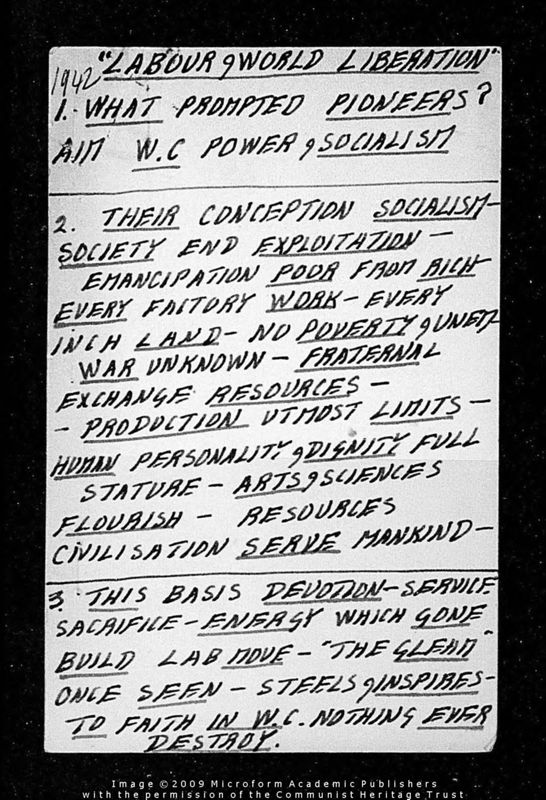 1942 "LABOUR & WORLD LIBERATION"
1. WHAT PROMPTED PIONEERS?
AIM W.C POWER & SOCIALISM
2. THEIR CONCEPTION SOCIALISM-
SOCIETY END EXPLOITATION -
EMANCIPATION POOR FROM RICH
EVERY FACTORY WORK - EVERY
INCH LAND - NO POVERTY & UNEM
WAR UNKNOWN - FRATERNAL
EXCHANGE RESOURCES -
- PRODUCTION UTMOST LIMITS -
HUMAN PERSONALITY & DIGNITY FULL
STATURE - ARTS & SCIENCES
FLOURISH - RESOURCES
CIVILISATION SERVE MANKIND -
3. THIS BASIS DEVOTION - SERVICE
SACRIFICE - ENERGY WHICH GONE
BUILD LAB MOVE - "THE GLEAM"
ONCE SEEN - STEELS & INSPIRES -
TO FAITH IN W.C. NOTHING EVER
DESTROY.
Image ©2009 Microform Academic Publishers
with the permission of the Communist Heritage Trust